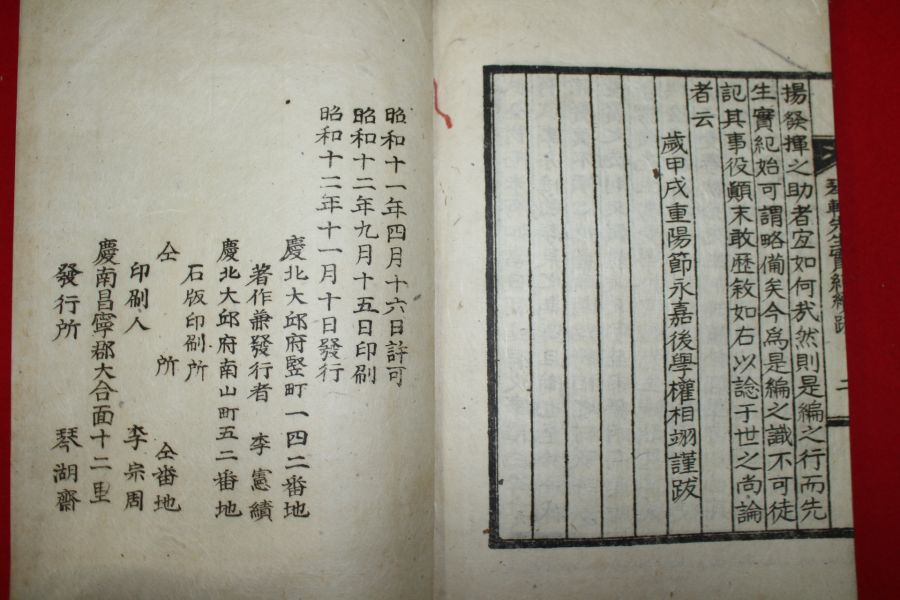 揚發揮之助者宜如何哉然則是編之行而先
生實紀始可謂略備矣今為是編之識不可徒
記其事役顛末敢歷敘如右以諗于世之尚論
者云
歲甲戌重陽節永嘉後學權相翊謹跋
軒先生實紀續跋
二
昭和十一年四月十六日許可
昭和十二年九月十五日印刷
昭和十二年十一月十日發行
慶北大邱府竪町一四二番地
著作兼發行者 李憲績
慶北大邱府南山町五二番地
石版印刷所
仝所 仝番地
印刷人 李宗周
慶南昌寧郡大合面十二里
發行所 琴湖齋